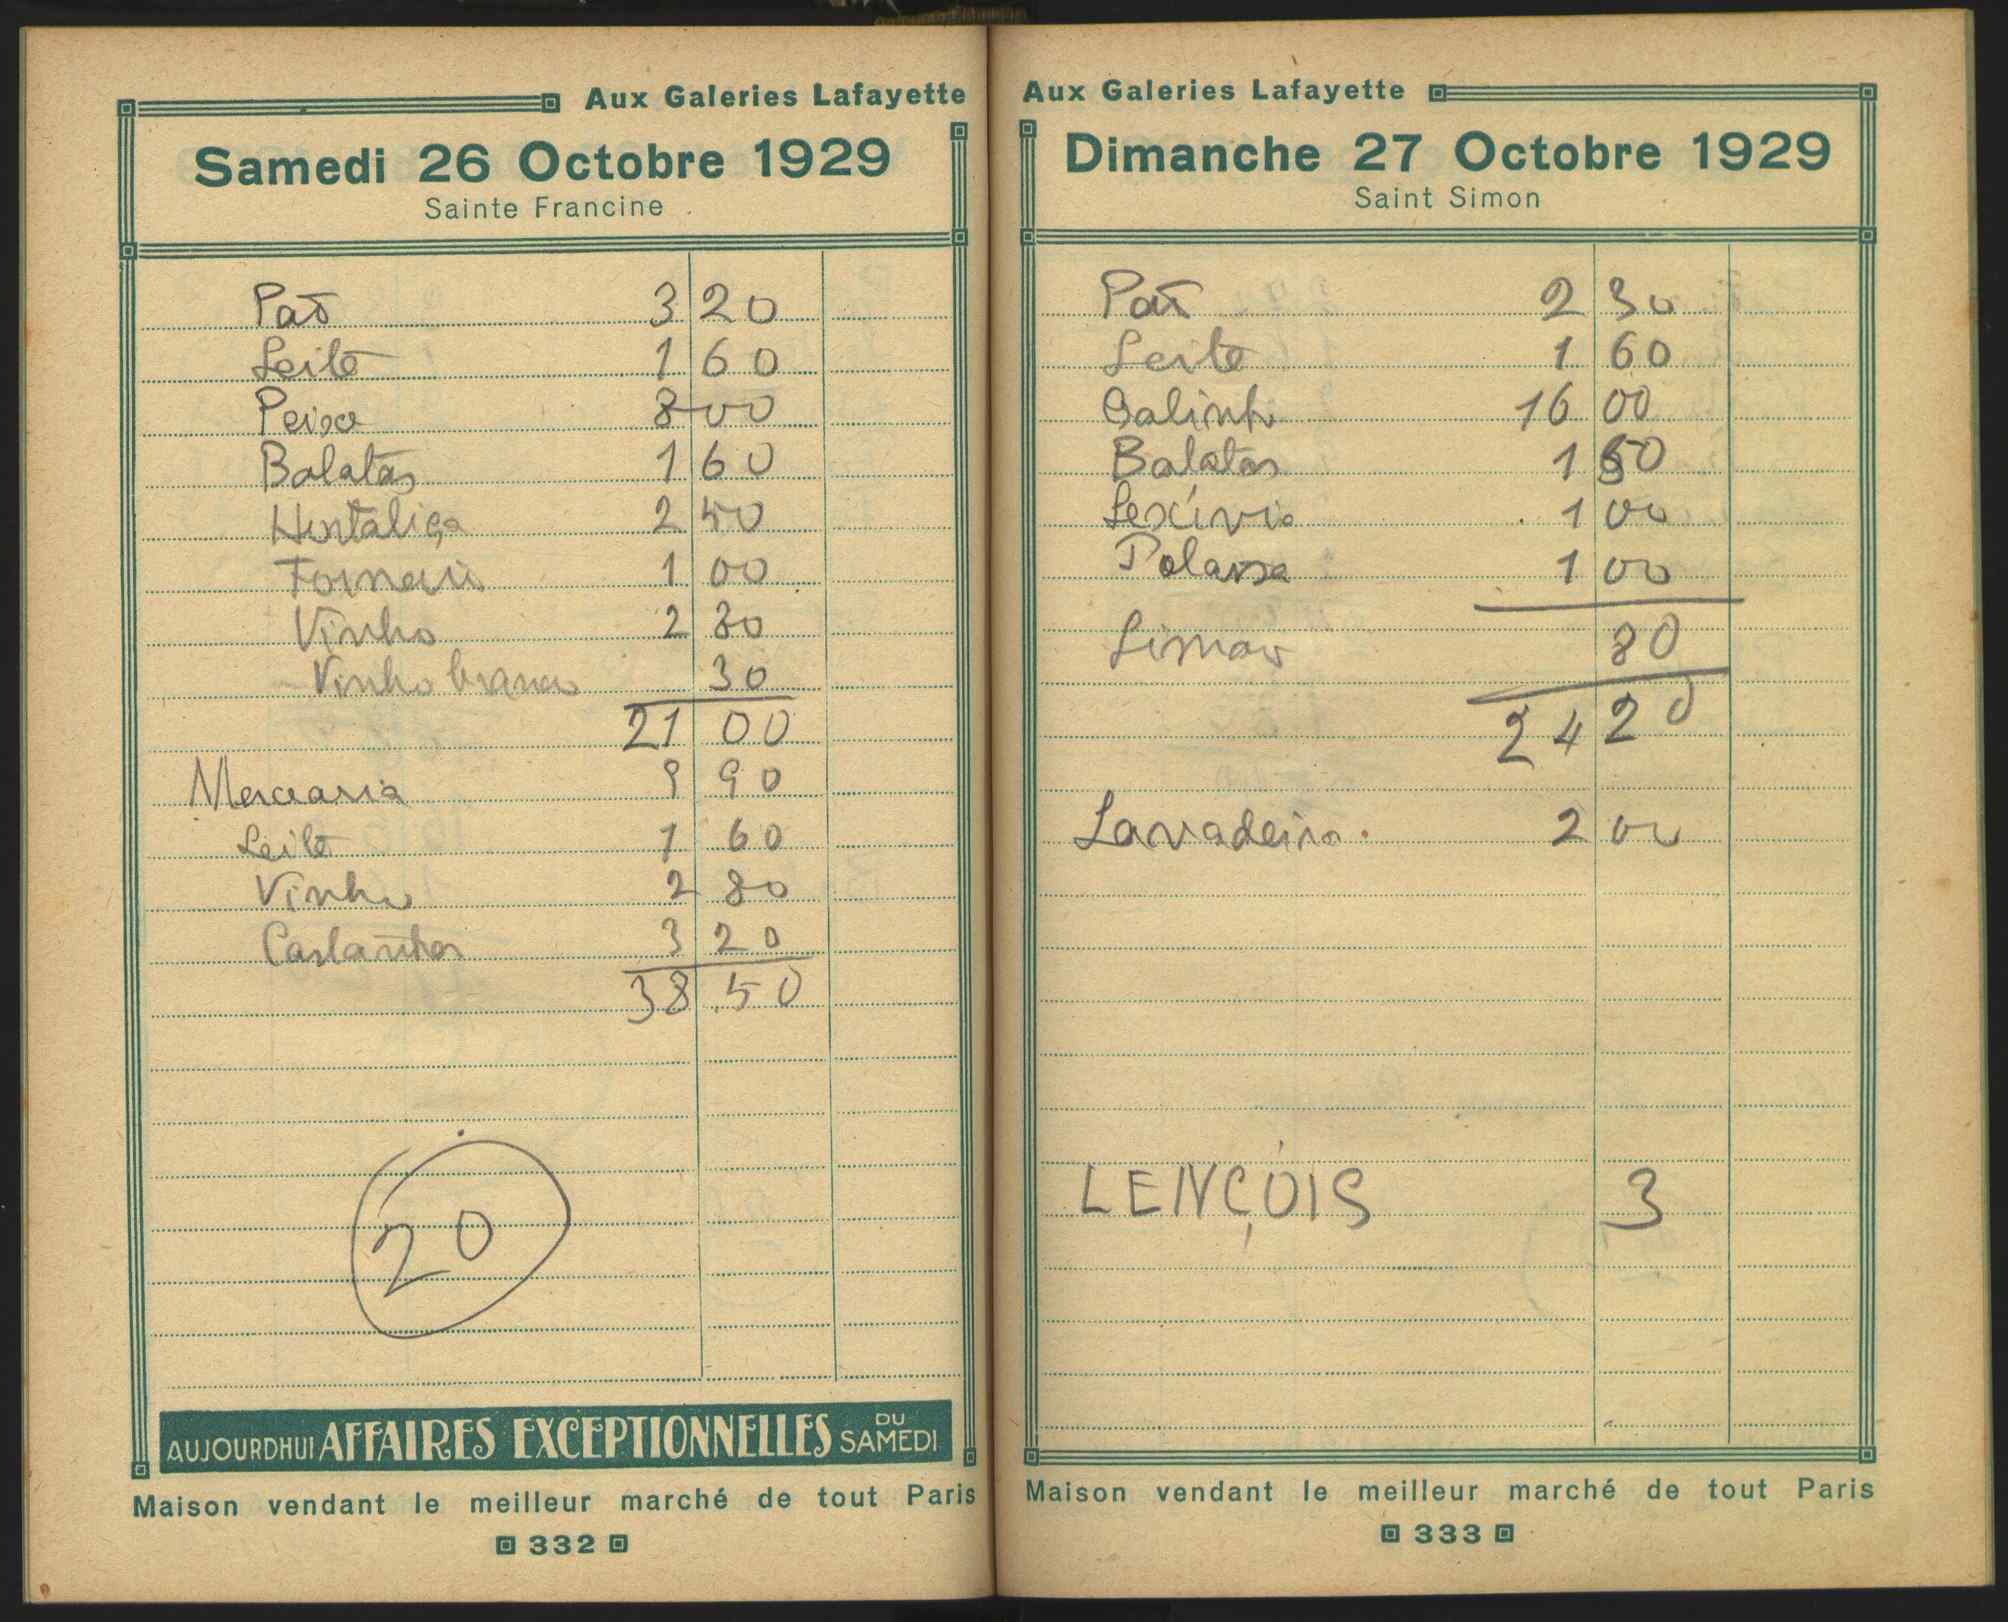 Aux Galeries Lafayette
Samedi 26 Octobre 1929
Sainte Francine
Pão 3 20
Leite 1 60
Peixe 8 00
Batatas 1 60
Hortaliça 2 50
1 00
Vinho 2 80
Vinho branco 30
21 00
Mercearia 9 90
Leite 1 60
Vinho 2 80
Castanhas 3 20
38 50
20
AUJOURDHUI AFFAIRES EXCEPTIONNELLES DU SAMEDI
Maison vendant le meilleur marché de tout Paris
332
Aux Galeries Lafayette
Dimanche 27 Octobre 1929
Saint Simon
Pão 2 30
Leite 1 60
Galinha 16 00
Batatas 1 50
Lexívia 1 00
Potassa 1 00
Limão 80
24 20
Lavadeira 2 00
LENÇÓIS 3
Maison vendant le meilleur marché de tout Paris
333